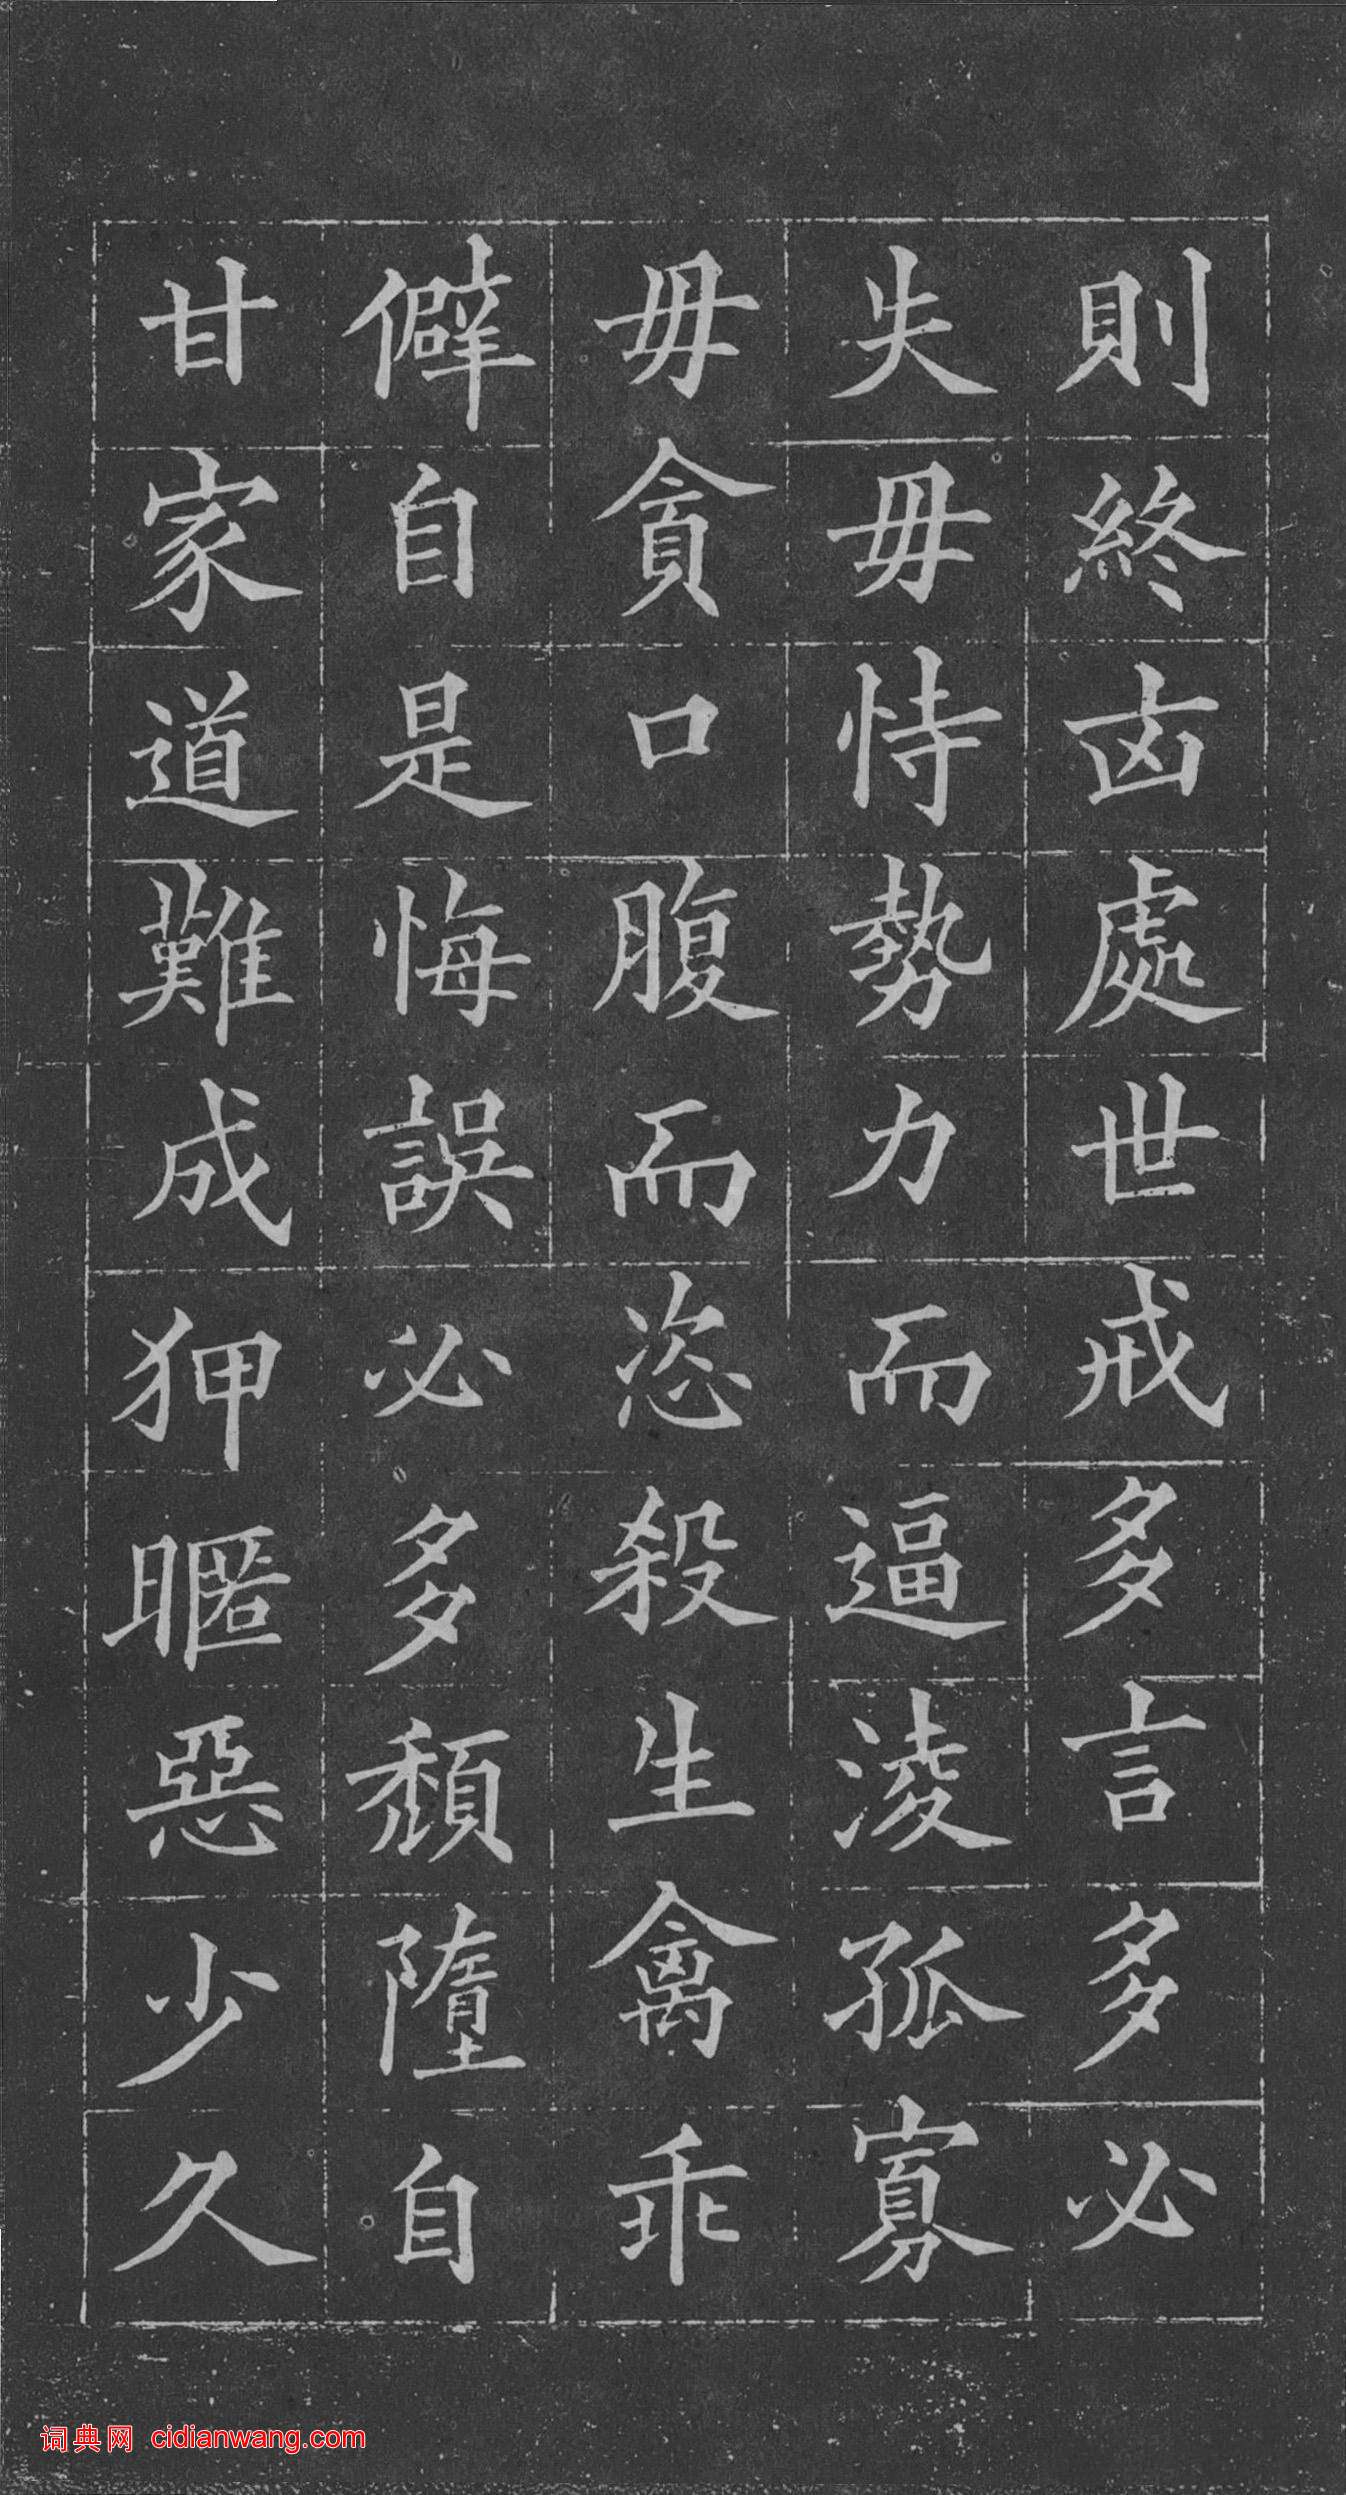 則終凶處世戒多言多必
失毋恃勢力而逼淩孤寡
毋貪口腹而恣殺生禽乖
僻自是悔誤必多頹隳自
甘家道難成狎暱惡少久
词典网 cidianwang.com